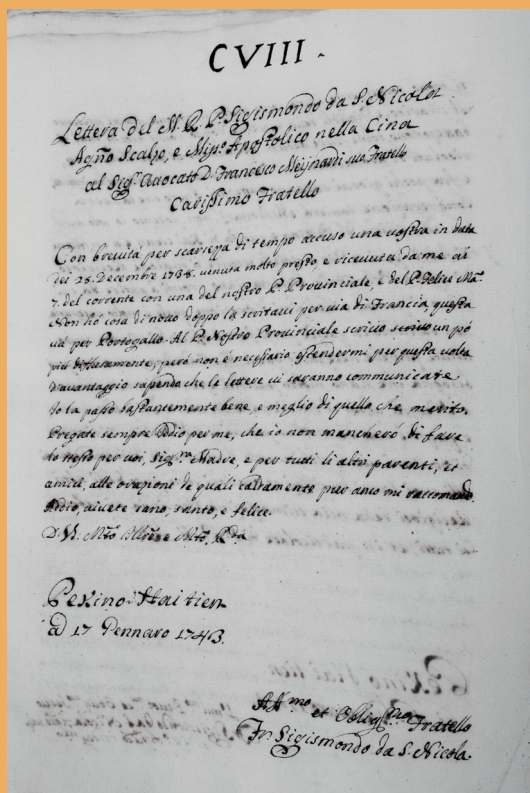 CVIII.
Lettera del M. R. P. Sigismondo da S. Nicola
Agño Scalzo, e Miss. Apostolico nella Cina
al Sig. Avvocato D. Francesco Meijnardi suo Fratello
Carissimo Fratello
Con brevitá per scarsezza di tempo accuso una vostra in data
dei 28. Decembre 1738. venuta molto presto, e ricevuta da me ai
7. del corrente con una del nostro P. Provinciale, e del P. Felice Ma.
Non hó cosa di nuovo doppo la scrittavi per via di Francia, questa
vá per Portogallo. Al P. Nostro Provinciale scrivo scrivo un pó
piú diffusamente, peró non é necessario estendermi per questa volta
d'avantaggio sapendo che le lettere vi saranno communicate.
Io la passo bastantemente bene, e meglio di quello che merito.
Pregate sempre Iddio per me, che io non mancheró di fare
lo stesso per voi, Sig.ra Madre, e per tutti li altri parenti, et
amici, alle orazioni de quali caldamente pur anco mi raccomando.
Adio, vivete sano, santo, e felice.
D. V. Mto Illre e Mto Rda
Pexino Haitien
ad 17 Gennaro 1743.
Affmo et Obligmo Fratello
Fr. Sigismondo da S. Nicola.